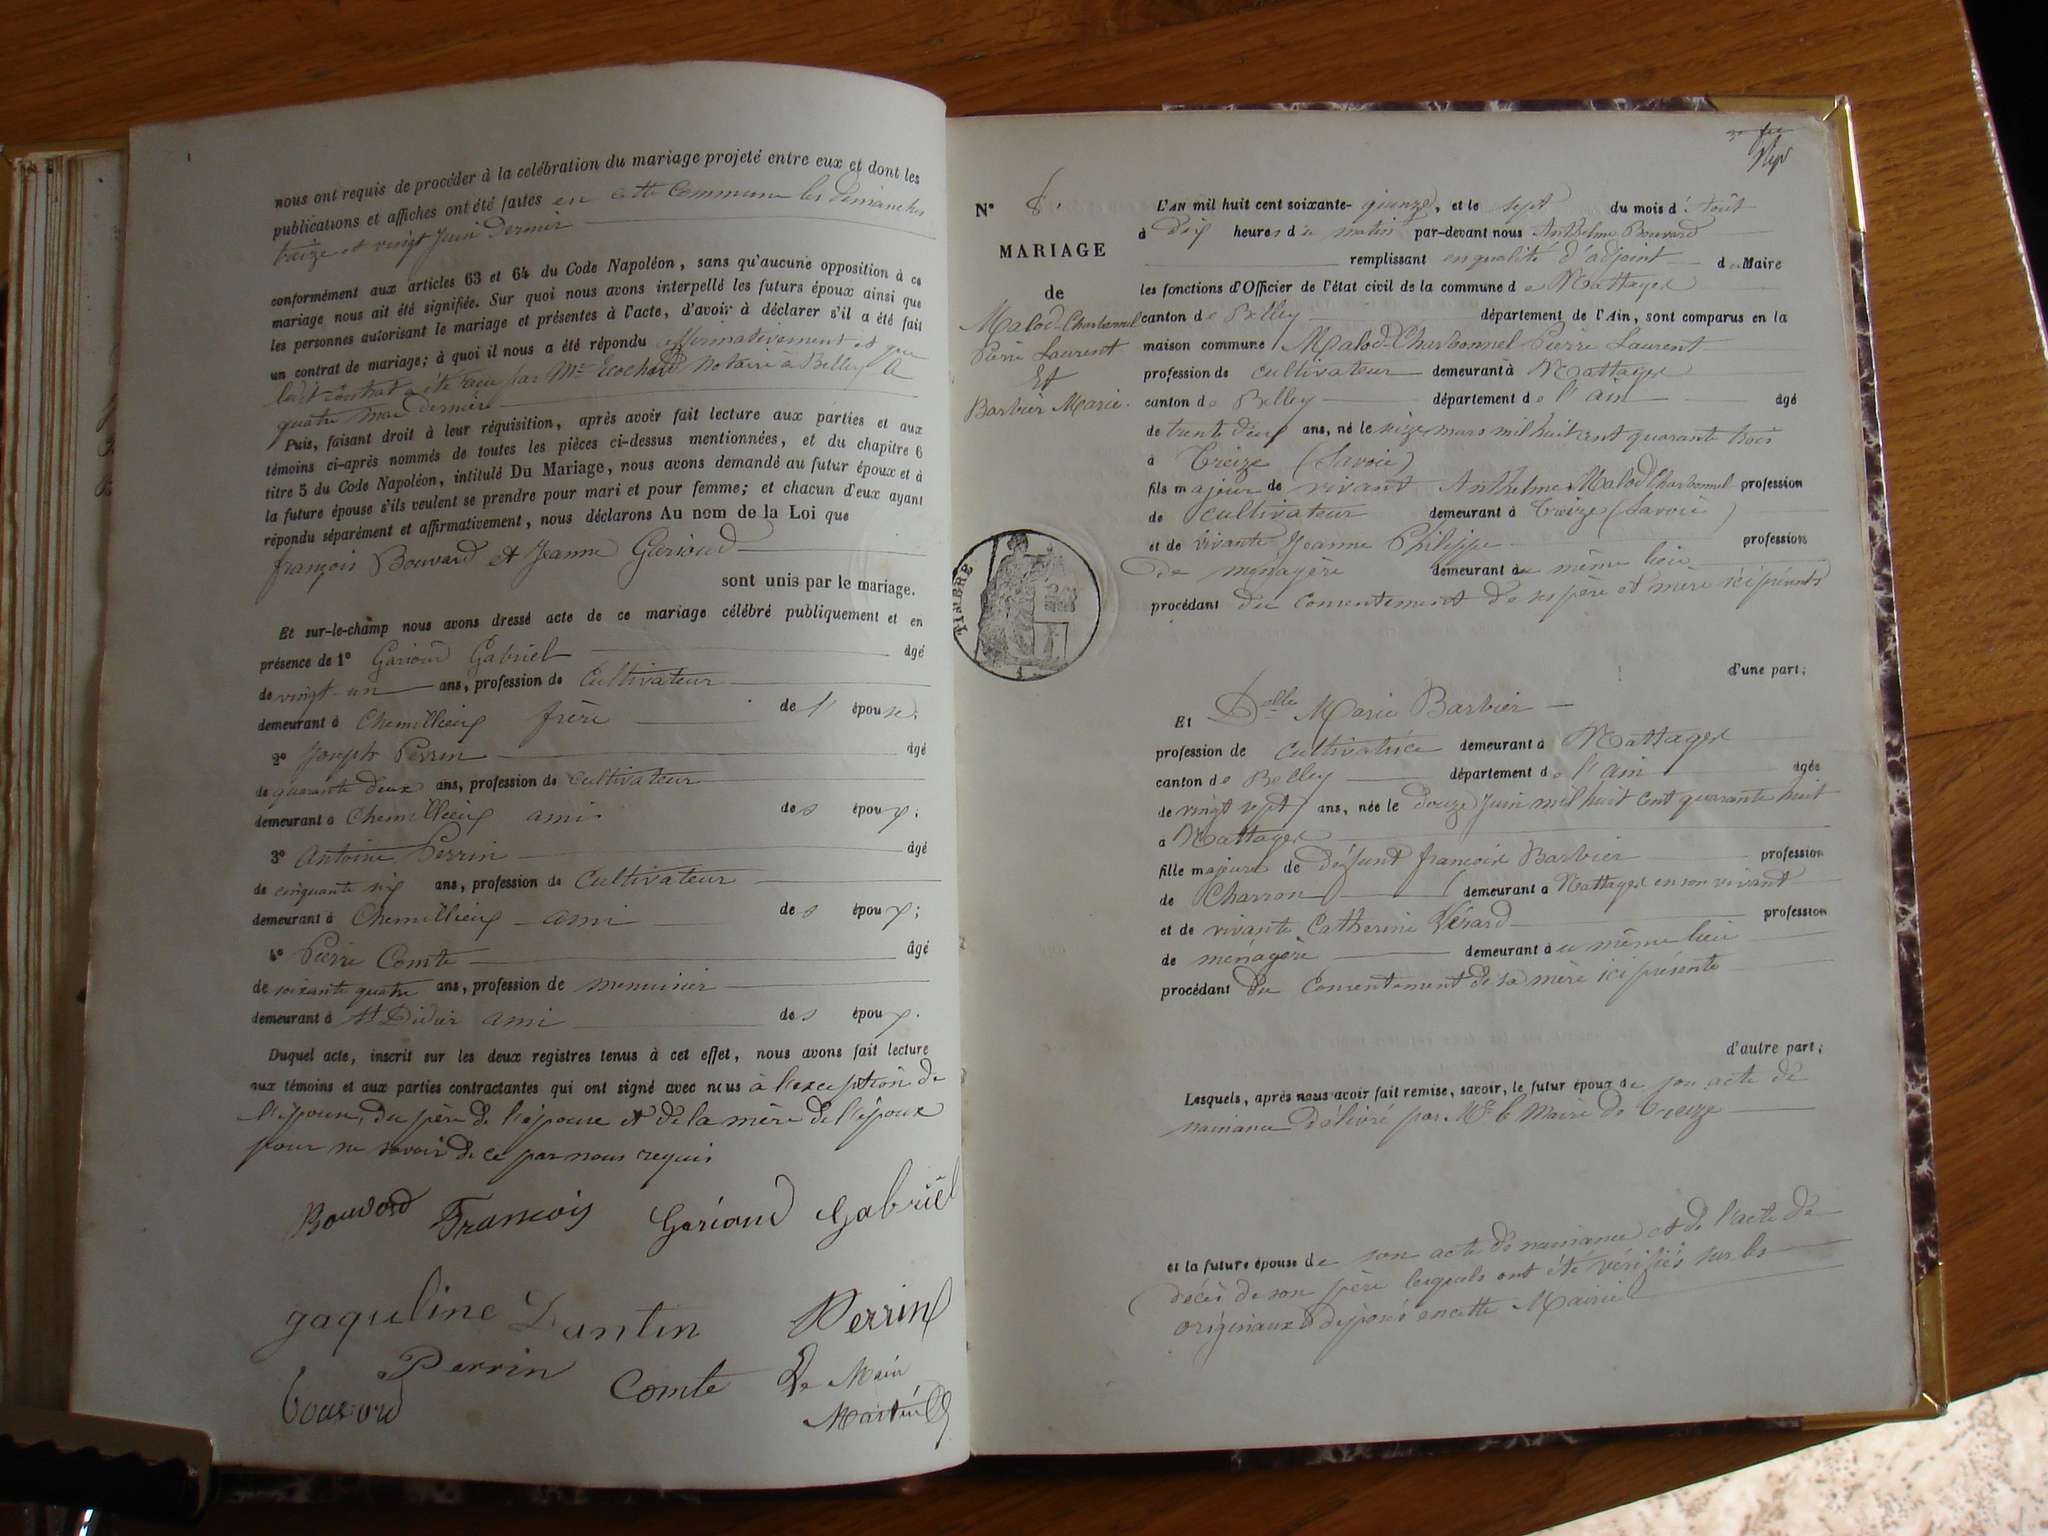 nous ont requis de procéder à la célébration du mariage projeté entre eux et dont les
publications et affiches ont été faites en cette Commune les dimanches
treize et vingt Juin dernier
conformément aux articles 63 et 64 du Code Napoléon, sans qu'aucune opposition à ce
mariage nous ait été signifiée. Sur quoi nous avons interpellé les futurs époux ainsi que
les personnes autorisant le mariage et présentes à l'acte, d'avoir à déclarer s'il a été fait
un contrat de mariage; à quoi il nous a été répondu affirmativement et que
ledit contrat a été reçu par Me notaire à Belley le
quatre mai dernier
Puis, faisant droit à leur réquisition, après avoir fait lecture aux parties et aux
témoins ci-après nommés de toutes les pièces ci-dessus mentionnées, et du chapitre 6
titre 5 du Code Napoléon, intitulé Du Mariage, nous avons demandé au futur époux et à
la future épouse s'ils veulent se prendre pour mari et pour femme; et chacun d'eux ayant
répondu séparément et affirmativement, nous déclarons Au nom de la Loi que
françois Bouvard et Jeanne Garioud
sont unis par le mariage.
Et sur-le-champ nous avons dressé acte de ce mariage célébré publiquement et en
présence de 1° Garioud Gabriel âgé
de vingt-un ans, profession de Cultivateur
demeurant à Chemillieu frère de l'épouse;
2° Joseph Perrin âgé
de quarante deux ans, profession de cultivateur
demeurant à Chemillieu ami des époux;
3° Antoine Perrin âgé
de cinquante six ans, profession de Cultivateur
demeurant à Chemillieu ami des époux;
4° Pierre Comte âgé
de soixante quatre ans, profession de menuisier
demeurant à St Didier ami des époux.
Duquel acte, inscrit sur les deux registres tenus à cet effet, nous avons fait lecture
aux témoins et aux parties contractantes qui ont signé avec nous à l'exception de
l'épouse, du père de l'épouse et de la mère de l'époux
pour ne savoir de ce par nous requis
Bouvard François Garioud Gabriël
gaqueline Dantin Perrin
Perrin Comte Le Maire
bouvard Martin
N° 8.
MARIAGE
de
Malod-Charbonnel
Pierre Laurent
Et
Barbier Marie.
TIMBRE
L'AN mil huit cent soixante-quinze, et le sept du mois d'Août
à dix heures du matin par-devant nous Anthelme Bouvard
remplissant en qualité d'adjoint du Maire
les fonctions d'Officier de l'état civil de la commune de Nattages
canton de Belley département de l'Ain, sont comparus en la
maison commune Malod-Charbonnel Pierre Laurent
profession de cultivateur demeurant à Nattages
canton de Belley département de l'ain âgé
de trente deux ans, né le seize mars mil huit cent quarante trois
à Treize (Savoie)
fils majeur de vivant Anthelme Malod Charbonnel profession
de cultivateur demeurant à Treize (Savoie)
et de vivante Jeanne Philippe profession
de ménagère demeurant au même lieu
procédant du consentement de ses père et mère ici présents
d'une part;
Et Delle Marie Barbier
profession de cultivatrice demeurant à Nattages
canton de Belley département de l'ain âgée
de vingt sept ans, née le douze juin mil huit cent quarante huit
à Nattages
fille majeure de défunt françois Barbier profession
de Charron demeurant à Nattages en son vivant
et de vivante Catherine Vérard profession
de ménagère demeurant au même lieu
procédant du Consentement de sa mère ici présente
d'autre part;
Lesquels, après nous avoir fait remise, savoir, le futur époux de son acte de
naissance délivré par Mr le Maire de Treize
et la future épouse de son acte de naissance et de l'acte de
décès de son père lesquels ont été vérifiés sur les
originaux déposés en cette Mairie